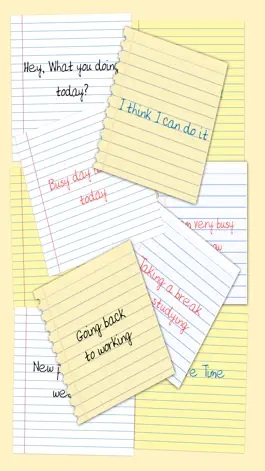 Hey, What you doing
today?
I think I can do it
Busy day
today
very busy
Taking a break
studying
Going back
to working
New
Time